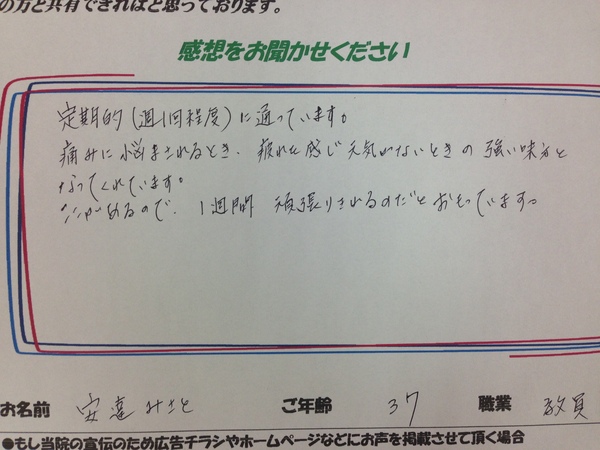 の方と共有できればと思っております。
感想をお聞かせください
定期的(週1回程度)に通っています。
痛みに悩まされるとき、疲れた感じ元気がないときの強い味方と
なってくれています。
ここがあるので、1週間 頑張りきれるのだとおもっています。
お名前 安達みさと ご年齢 37 職業 教員
●もし当院の宣伝のため広告チラシやホームページなどにお声を掲載させて頂く場合